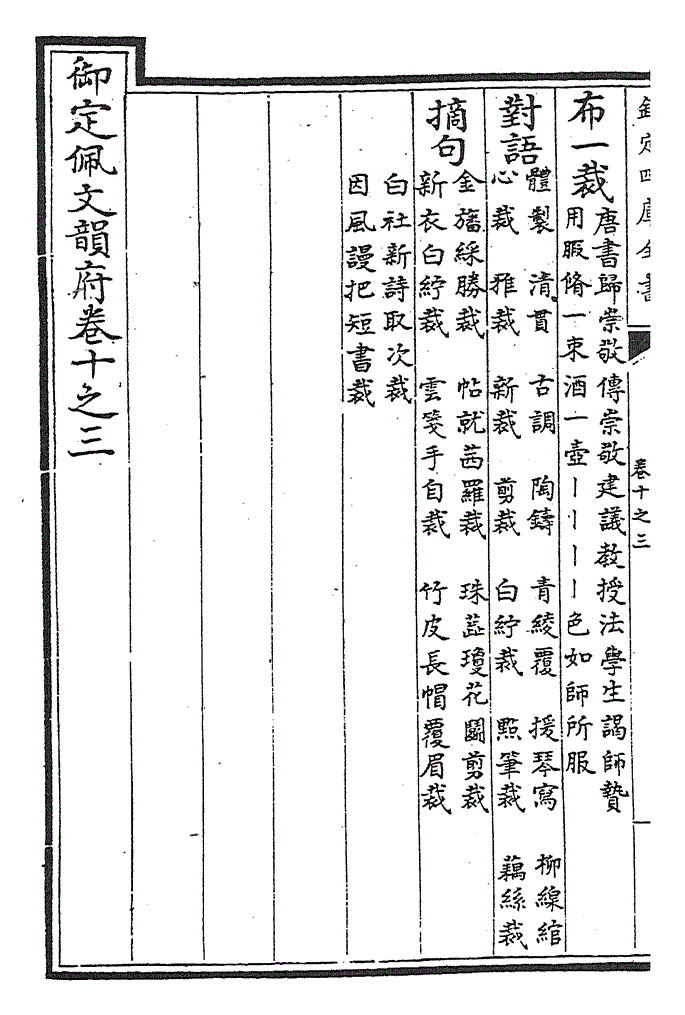 欽定四庫全書 卷十之三
布一裁
唐書歸崇敬傳崇敬建議教授法學生謁師贄
用腶脩一束酒一壺丨丨丨丨色如師所服
對語
體製 清貫 古調 陶鑄 青綾覆 援琴寫 柳線綰
心裁 雅裁 新裁 剪裁 白紵裁 㸃筆裁 藕絲裁
摘句
金旛綵勝裁 帖就茜羅裁 珠蕋瓊花鬬剪裁
新衣白紵裁 雲箋手自裁 竹皮長帽覆眉裁
白社新詩取次裁
因風謾把短書裁
御定佩文韻府卷十之三